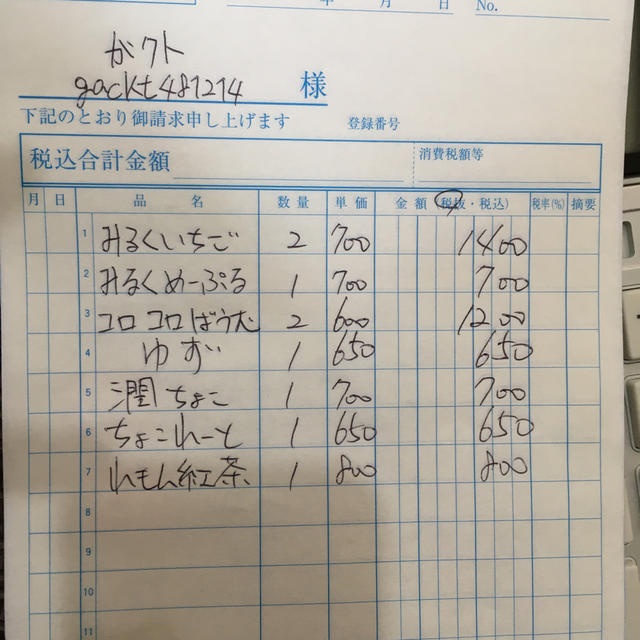 年 月 日 No.
ガクト
gackt481214 様
下記のとおり御請求申し上げます 登録番号
税込合計金額 消費税額等
月 日 品名 数量 単価 金額(税抜・税込) 税率(%) 摘要
1 みるくいちご 2 700 1400
2 みるくめーぷる 1 700 700
3 コロコロばうむ 2 600 1200
4 ゆず 1 650 650
5 潤ちょこ 1 700 700
6 ちょこれーと 1 650 650
7 れもん紅茶 1 800 800
8
9
10
11